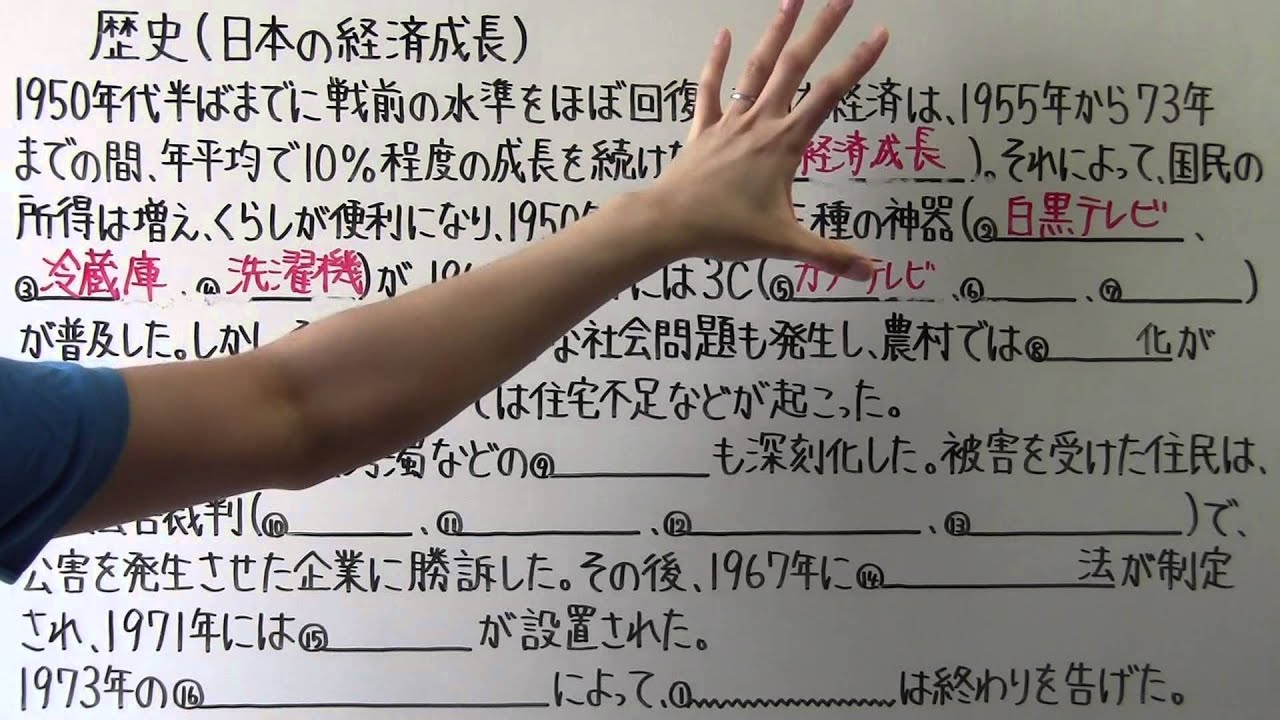 歴史(日本の経済成長)
1950年代半ばまでに戦前の水準をほぼ回復 経済は、1955年から73年
までの間、年平均で10%程度の成長を続け 経済成長 )。それによって、国民の
所得は増え、くらしが便利になり、1950年 種の神器(②白黒テレビ、
③冷蔵庫、④洗濯機)が 19 には3C(⑤カ テレビ、⑥ 、⑦ )
が普及した。しかし、 な社会問題も発生し、農村では⑧ 化が
は住宅不足などが起こった。
濁などの⑨ も深刻化した。被害を受けた住民は、
公害裁判(⑩ 、⑪ 、⑫ 、⑬ )で、
公害を発生させた企業に勝訴した。その後、1967年に⑭ 法が制定
され、1971年には⑮ が設置された。
1973年の⑯ によって、① は終わりを告げた。